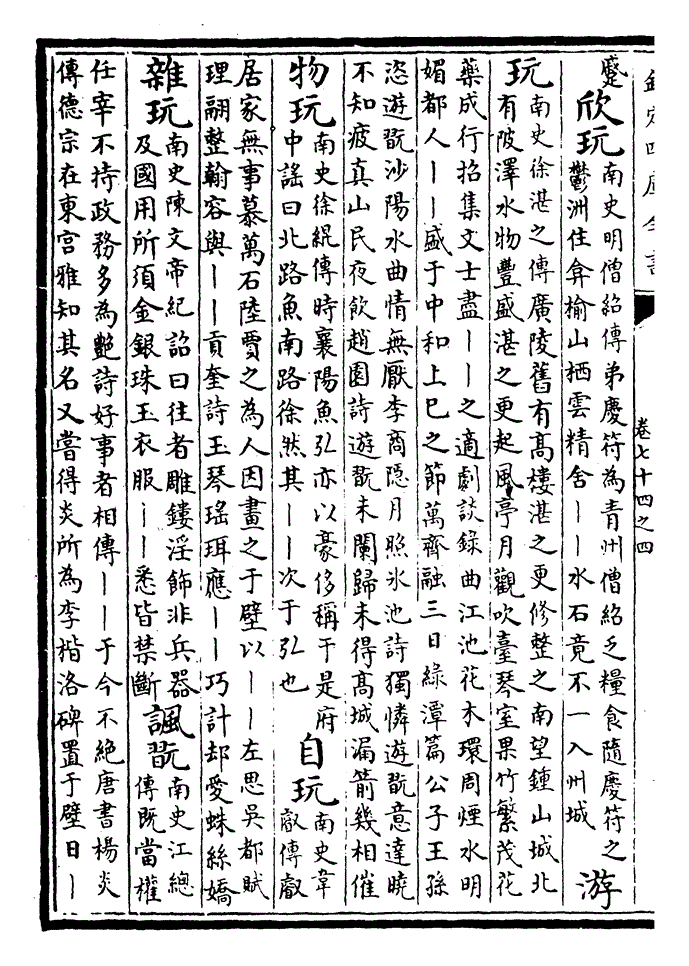 欽定四庫全書
卷七十四之四
蹙
欣玩
南史明僧紹傳弟慶符為青州僧紹乏糧食隨慶符之
鬱洲住弇榆山栖雲精舍||水石竟不一入州城
游
玩
南史徐湛之傳廣陵舊有高樓湛之更修整之南望鍾山城北
有陂澤水物豐盛湛之更起風亭月觀吹臺琴室果竹繁茂花
藥成行招集文士盡||之適劇談錄曲江池花木環周煙水明
媚都人||盛于中和上巳之節萬齊融三日緑潭篇公子王孫
恣遊翫沙陽水曲情無厭李商隠月照氷池詩獨憐遊翫意達曉
不知疲真山民夜飲趙園詩遊翫未闌歸未得髙城漏箭幾相催
物玩
南史徐緄傳時襄陽魚弘亦以豪侈稱于是府
中謠曰北路魚南路徐然其||次于弘也
自玩
南史韋
叡傳叡
居家無事慕萬石陸賈之為人因畫之于壁以||左思吳都賦
理翮整翰容與||貢奎詩玉琴瑤珥應||巧計却愛蛛絲嬌
雜玩
南史陳文帝紀詔曰往者雕鏤淫飾非兵器
及國用所須金銀珠玉衣服||悉皆禁斷
諷翫
南史江總
傳既當權
任宰不持政務多為艶詩好事者相傳||于今不絕唐書楊炎
傳德宗在東宮雅知其名又嘗得炎所為李楷洛碑置于壁日|